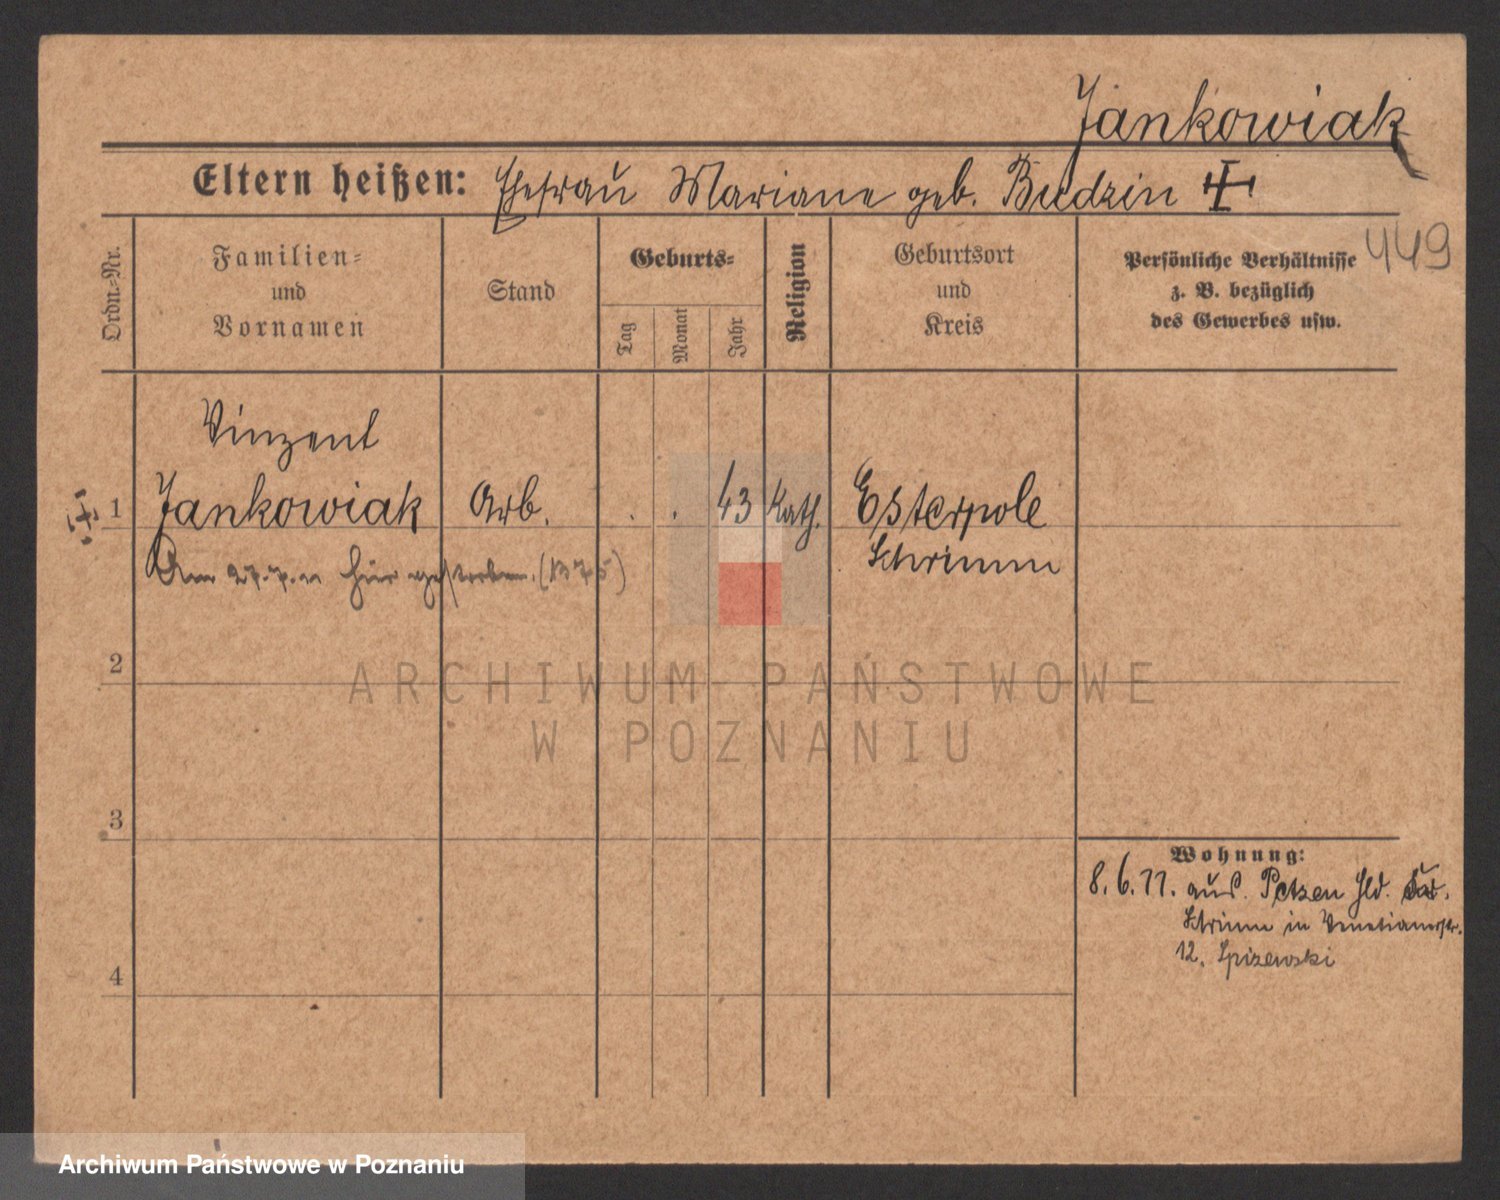 Jankowiak
Eltern heißen: Ehefrau Mariane geb. Budzin
449
Ordn.-Nr.
Familien-
und
Vornamen
Stand
Geburts-
Tag
Monat
Jahr
Religion
Geburtsort
und
Kreis
Persönliche Verhältnisse
z. B. bezüglich
des Gewerbes usw.
Vinzent
1 Jankowiak Arb. . . 43 Kath. Esterpole
Schrimm
Am 27.7.11 hier gestorben. (1375)
2
3
4
Wohnung:
8.6.11. aus Petzen Hld.
Schrimm in Venetianerstr.
12. Spizewski
ARCHIWUM PAŃSTWOWE
W POZNANIU
Archiwum Państwowe w Poznaniu